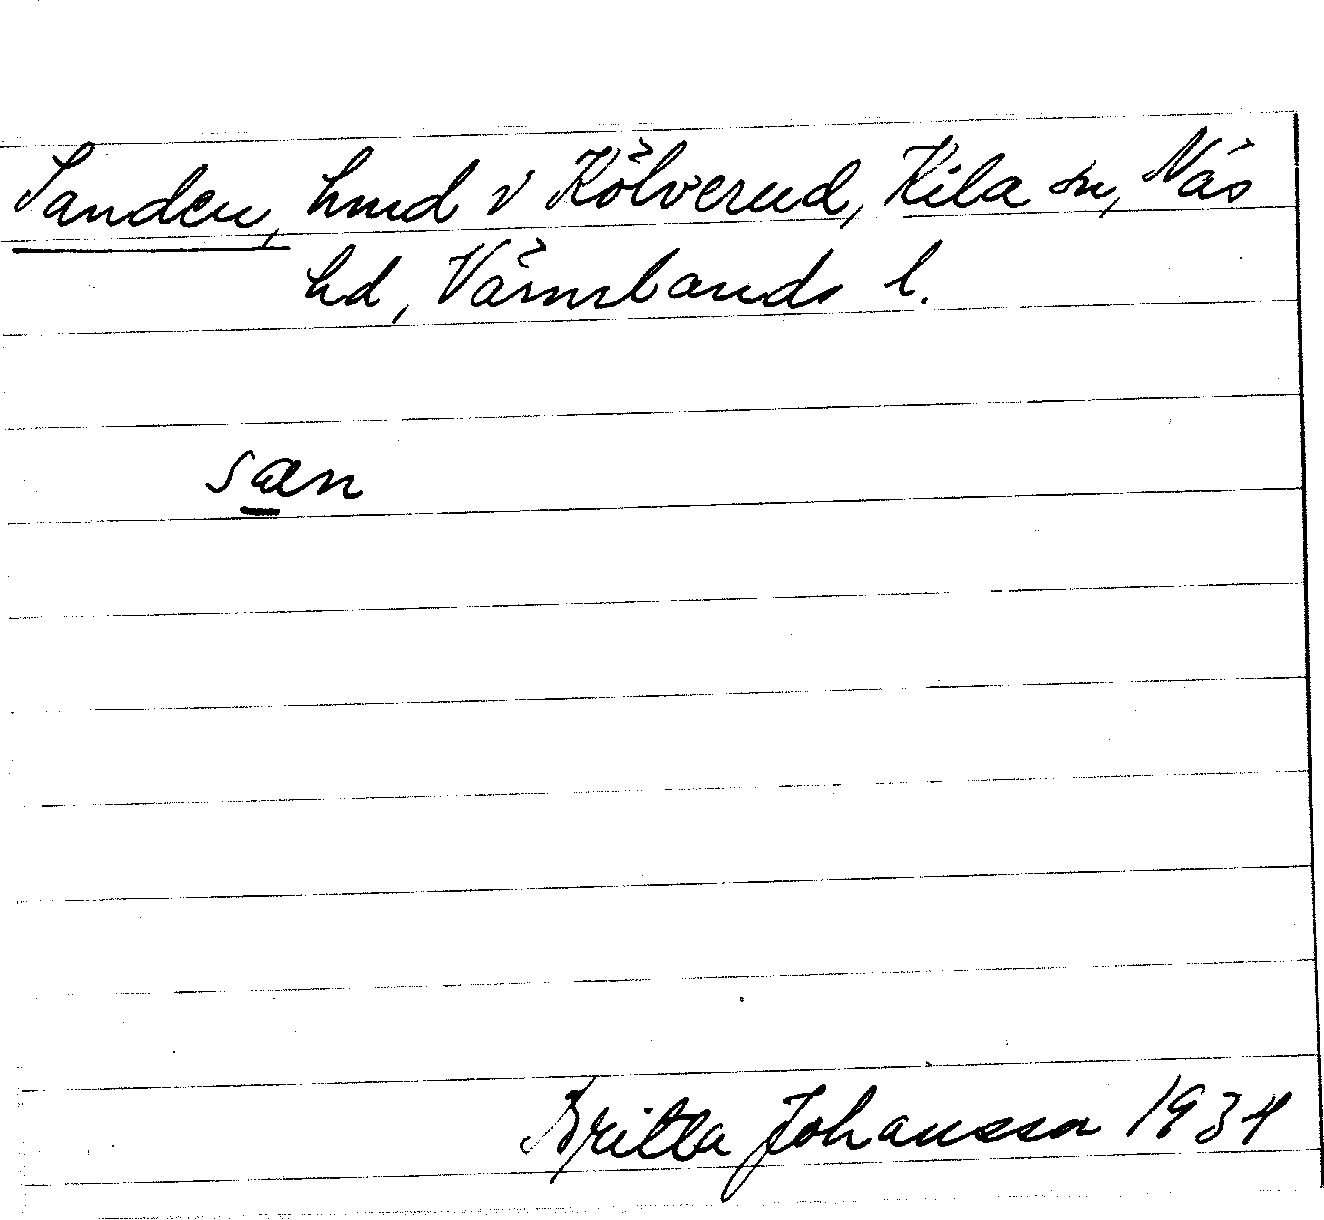 Sanden, hmd v Kölverud, Kila sn, Näs
hd, Värmlands l.
san
Britta Johansson 1934